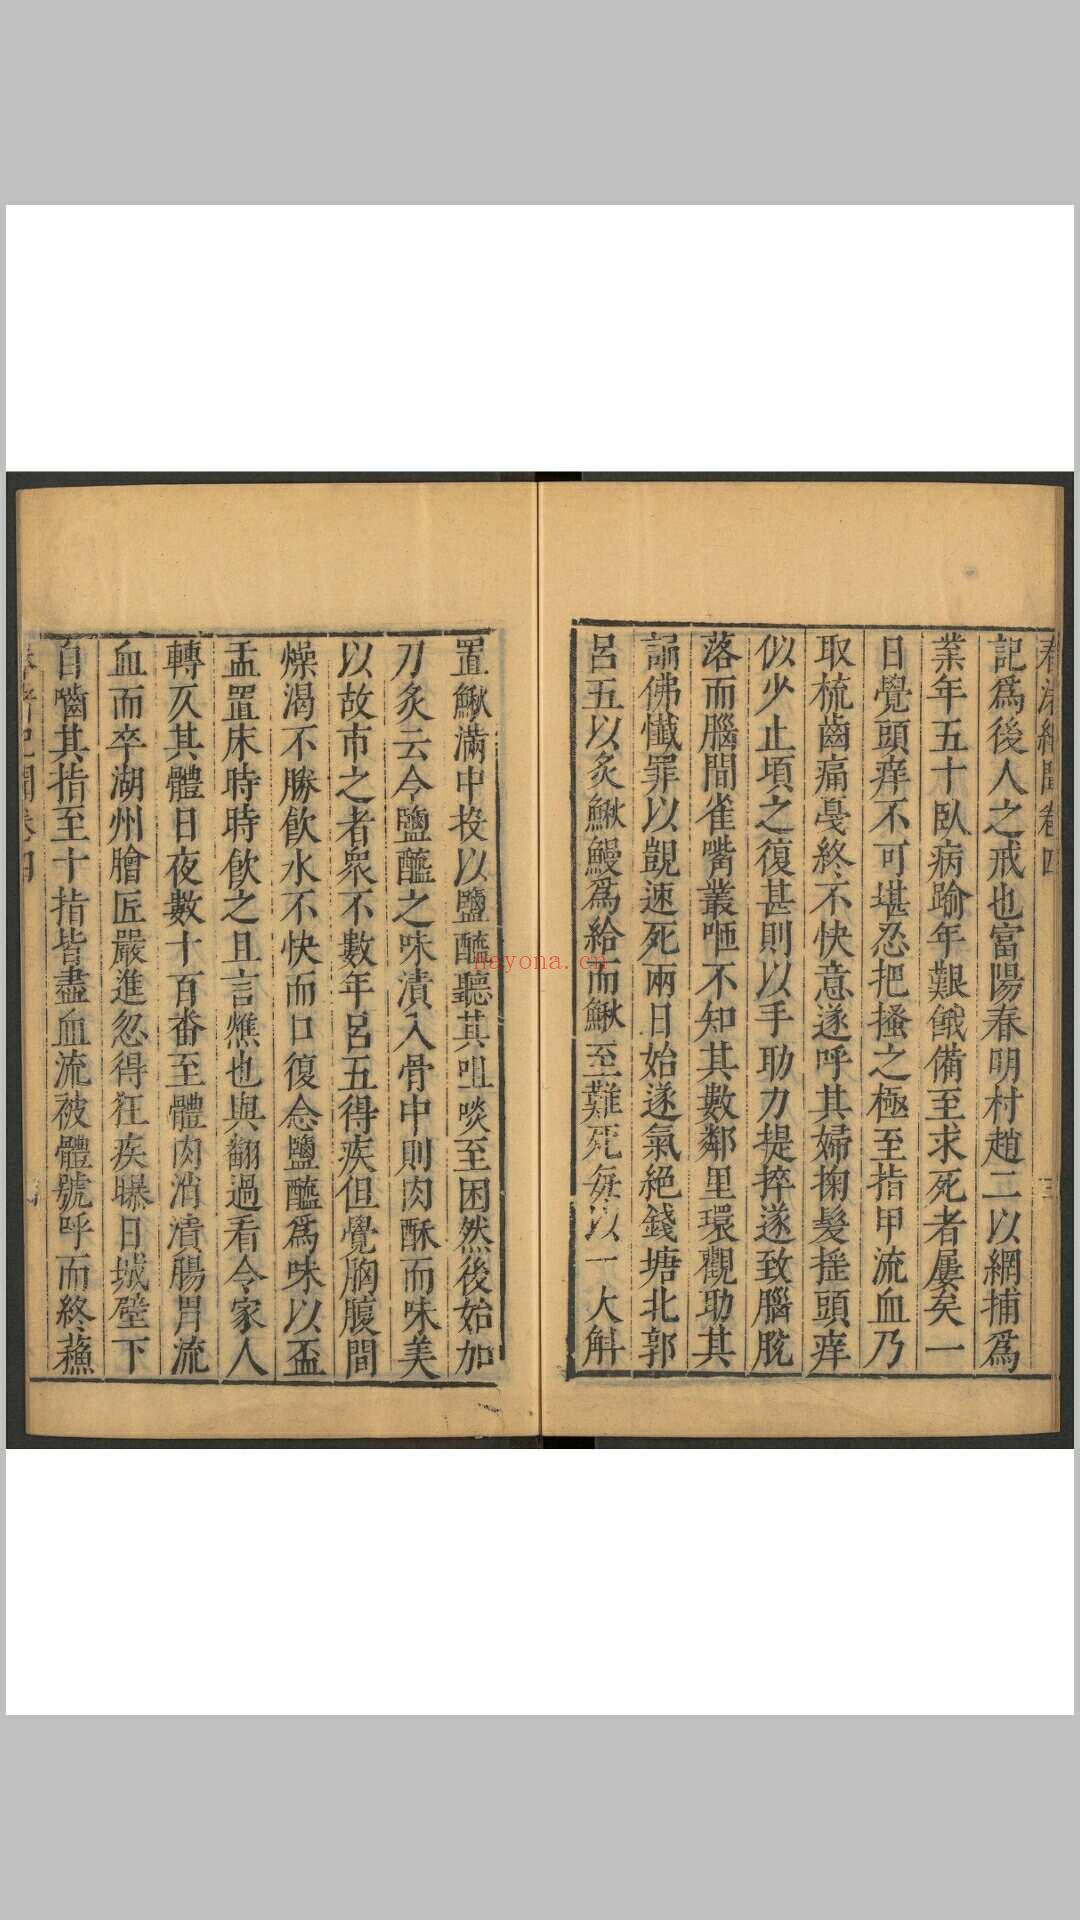 春渚紀聞卷四 三
記爲後人之戒也富陽春明村趙二以網捕爲
業年五十臥病踰年艱餓備至求死者屢矣一
日覺頭痒不可堪忍把搔之極至指甲流血乃
取梳齒痛㦸終不快意遂呼其婦掬髮搖頭痒
似少止頃之復甚則以手助力提捽遂致腦脫
落而腦間雀嘴叢咂不知其數鄰里環觀助其
誦佛懺罪以覬速死兩日始遂氣絕錢塘北郭
呂五以炙鰍鰻爲給而鰍至難死每以一大斛
置鰍滿中投以鹽醯聽其咀啖至困然後始加
刀炙云令鹽醯之味漬入骨中則肉酥而味美
以故市之者衆不數年呂五得疾但覺胸腹間
燥渴不勝飲水不快而口復念鹽醯爲味以盃
盂置床時時飲之且言燋也與翻過看令家人
轉仄其體日夜數十百番至體肉消潰腸胃流
血而卒湖州膾匠嚴進忽得狂疾曝日城壁下
自嚙其指至十指皆盡血流被體號呼而終蘓
春渚紀聞卷四
nayona.cn